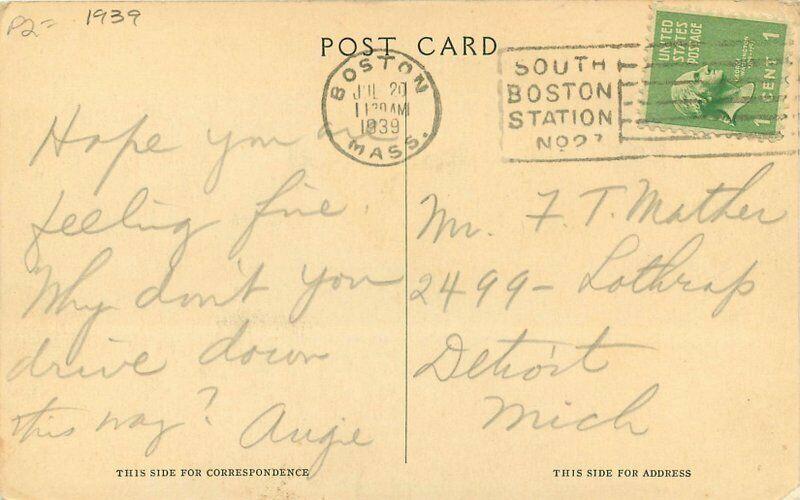 P2= 1939
POST CARD
BOSTON
JUL 20
1130AM
1939
MASS.
SOUTH
BOSTON
STATION
NO 27
UNITED
STATES
POSTAGE
GEORGE WASHINGTON
1 CENT 1
Hope you are
feeling fine.
Why don't you
drive down
this way? Angie
Mr. F. T. Mather
2499- Lothrop
Detroit
Mich
THIS SIDE FOR CORRESPONDENCE
THIS SIDE FOR ADDRESS